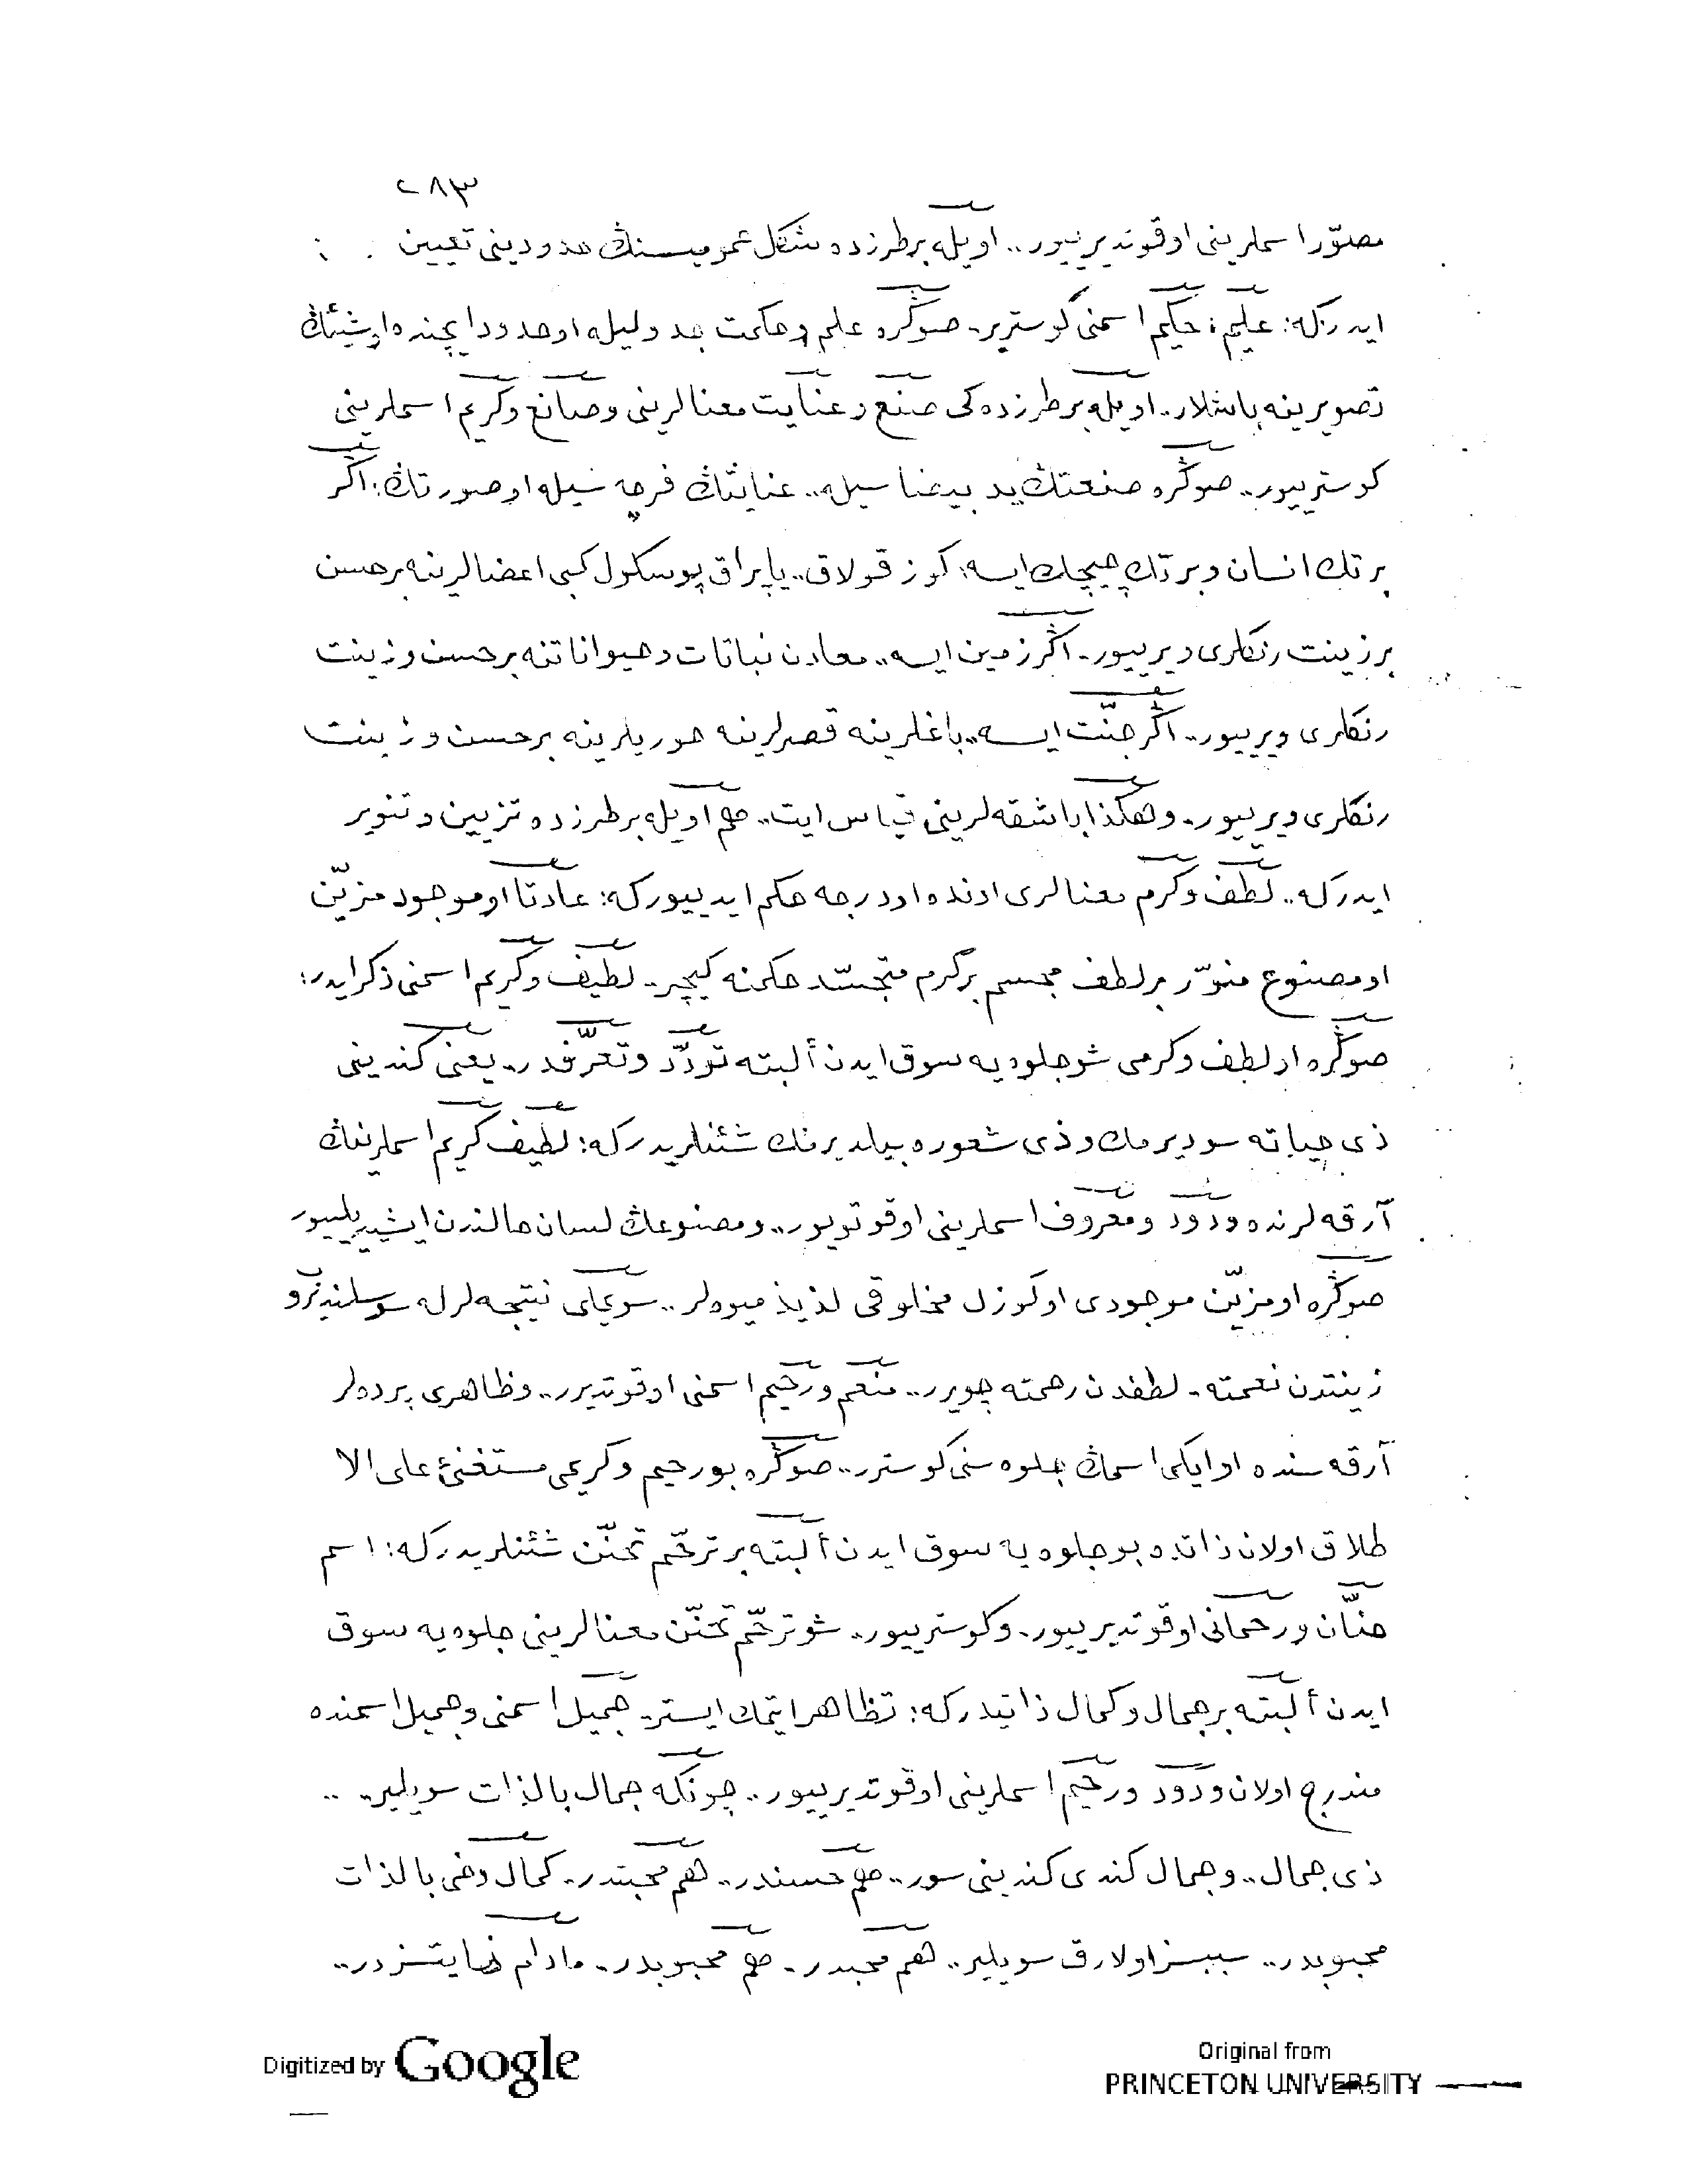 ٢٨٣
مصوّر اسملرينى اوقونديرييور.. اويله بر طرزده شكل عموميسنڭ حدودينى تعيين
ايدركه: عليم، حكيم اسمنى گوسترير. صوڭره علم و حكمت جدوليله او حدود ايچنده او شيئڭ
تصويرينه باشلار.. اويله بر طرزده كى صنع و عنايت معنالرينى و صانع و كريم اسملرينى
كوسترييور.. صوڭره صنعتڭ يد بيضاسيله.. عنايتڭ فرچه سيله او صورتڭ: اڭر
بر تك انسان و بر تك چيچك ايسه: كوز قولاق.. ياپراق پوسكول كبى اعضالرينه بر حسن
بر زينت رنكلرى ويرييور. اڭر زمين ايسه.. معادن نباتات و حيواناتنه بر حسن و زينت
رنكلرى ويرييور.. اڭر جنّت ايسه.. باغلرينه قصرلرينه حوريلرينه بر حسن و زينت
رنكلرى ويرييور.. وهكذا باشقه لرينى قياس ايت.. هم اويله بر طرزده تزيين و تنوير
ايدركه.. لطف و كرم معنالرى اونده او درجه حكم ايدييوركه: عادتا او موجود مزيّن
او مصنوع منوّر بر لطف مجسم بر كرم متجسّد حكمنه كيچر.. لطيف و كريم اسمنى ذكر ايدر:
صوڭره او لطف و كرمى شو جلوه يه سوق ايدن ألبته تودّد و تعرّفدر.. يعنى كندينى
ذى حياته سوديرمك و ذى شعوره بيلديرمك شئنلريدركه: لطيف كريم اسملرينڭ
آرقه لرنده ودود و معروف اسملرينى اوقوتويور.. و مصنوعڭ لسان حالندن ايشيديلييور
صوڭره او مزيّن موجودى او كوزل مخلوقى لذيذ ميوه لر.. سويملى نتيجه لرله سوسلنديروب
زينتدن نعمته. لطفدن رحمته چويرر.. منعم و رحيم اسمنى اوقوتديرر.. و ظاهرى پرده لر
آرقه سنده او ايكى اسمڭ جلوه سنى كوسترر.. صوڭره بو رحيم و كريمى مستغنئ على الا
طلاق اولان ذاتده بو جلوه يه سوق ايدن ألبته بر ترحّم تحنّن شئنلريدركه: اسم
حنّان و رحمانى اوقوتديرييور. و كوسترييور. شو ترحّم تحنّن معنالرينى جلوه يه سوق
ايدن ألبته بر جمال و كمال ذاتيدركه: تظاهر ايتمك ايستر. جميل اسمنى و جميل اسمنده
مندرج اولان ودود و رحيم اسملرينى اوقوتديرييور.. چونكه جمال بالذات سويلير. ..
ذى جمال.. و جمال كندى كندينى سور.. هم حسندر.. هم محبتدر. كمال دخى بالذات
محبوبدر.. سببسز اولارق سويلير.. هم محبدر. هم محبوبدر. مادام نهايتسز در..
Digitized by Google
Original from
PRINCETON UNIVERSITY